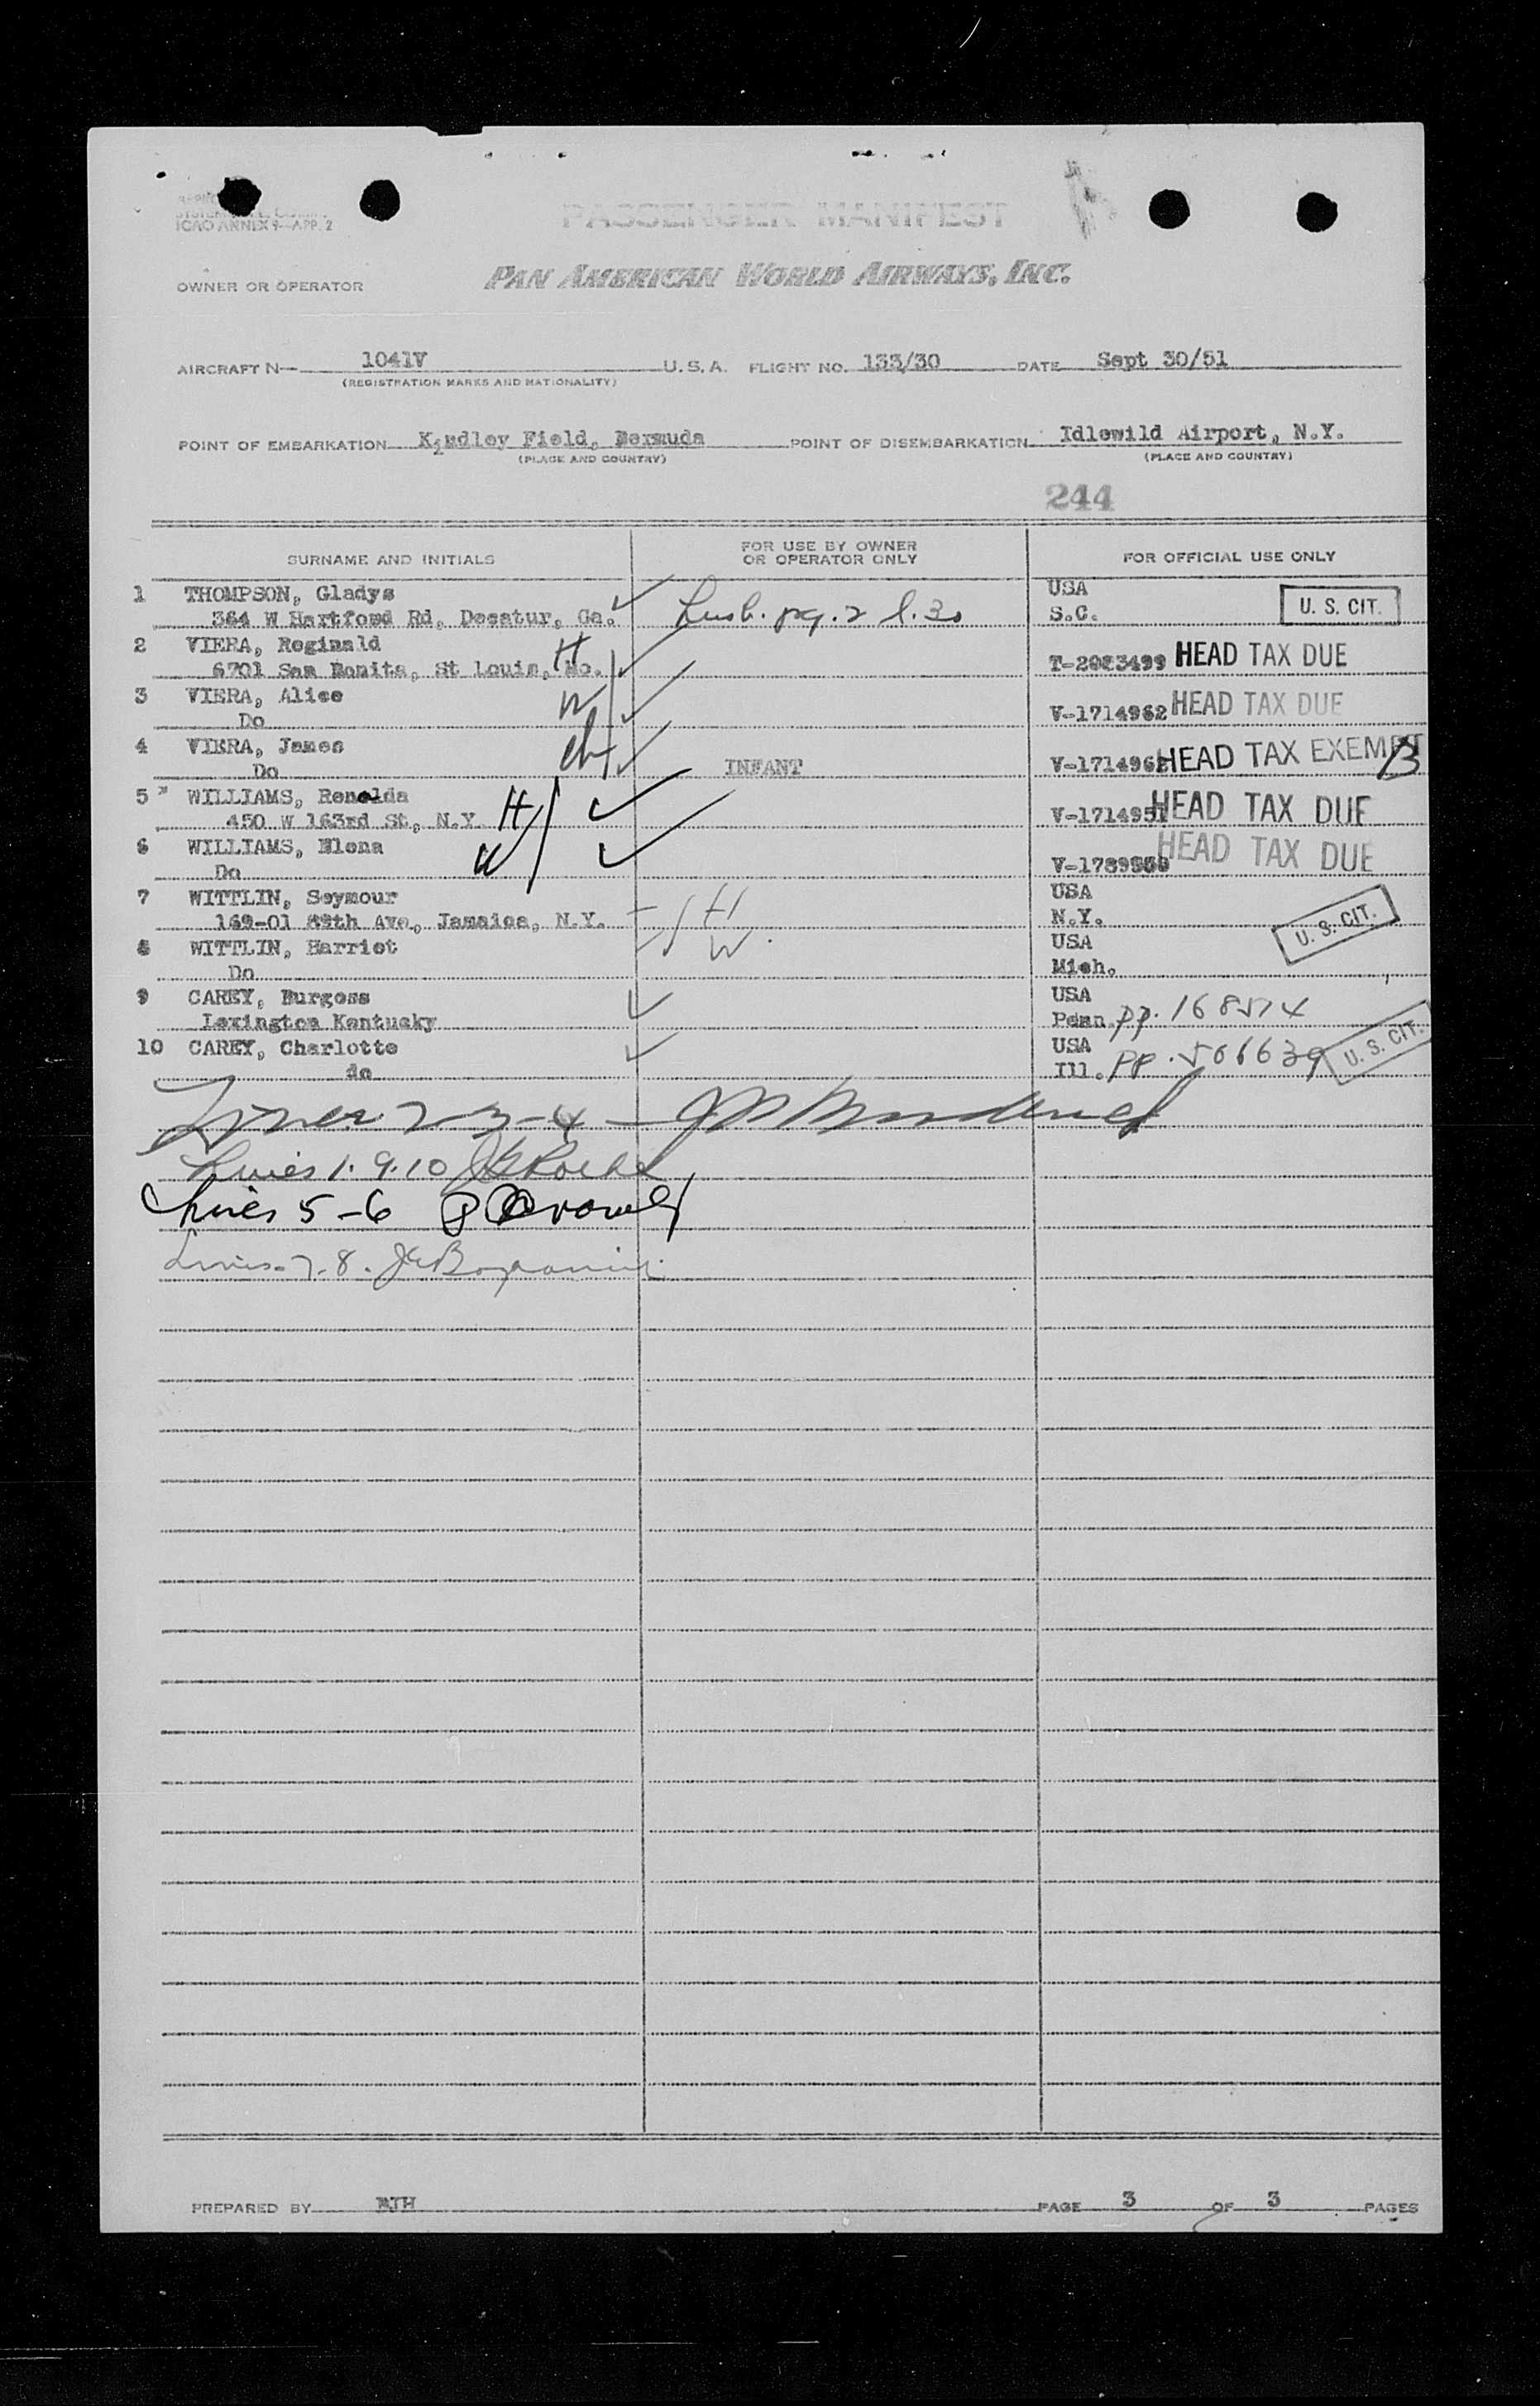 ICAO ANNEX 9-APP. 2
PASSENGER MANIFEST
OWNER OR OPERATOR PAN AMERICAN WORLD AIRWAYS, INC.
AIRCRAFT N- 1041V U.S.A. FLIGHT NO. 133/30 DATE Sept 30/51
(REGISTRATION MARKS AND NATIONALITY)
POINT OF EMBARKATION Kindley Field, Bermuda POINT OF DISEMBARKATION Idlewild Airport, N.Y.
(PLACE AND COUNTRY) (PLACE AND COUNTRY)
244
SURNAME AND INITIALS FOR USE BY OWNER OR OPERATOR ONLY FOR OFFICIAL USE ONLY
1 THOMPSON, Gladys USA
364 W Hartford Rd, Decatur, Ga. Husb. pg. 2 l. 30 S.C. U. S. CIT.
2 VIERA, Reginald H
6701 San Bonita, St Louis, Mo. T-2083499 HEAD TAX DUE
3 VIERA, Alice W
Do V-1714962 HEAD TAX DUE
4 VIERA, James ch
Do INFANT HEAD TAX EXEMPT B
5 WILLIAMS, Renalda
450 W 163rd St, N.Y. H V-1714951 HEAD TAX DUE
6 WILLIAMS, Elena W
Do HEAD TAX DUE
7 WITTLIN, Seymour H USA
169-01 89th Ave, Jamaica, N.Y. N.Y. U. S. CIT.
8 WITTLIN, Harriet W USA
Do Mich.
9 CAREY, Burgess USA
Lexington Kentucky Penn. pp. 168574
10 CAREY, Charlotte USA
do Ill. pp. 506639 U. S. CIT.
Lines 2-3-4 -
Lines 1. 9. 10
Lines 5-6
Lines 7. 8.
PREPARED BY MJH PAGE 3 OF 3 PAGES